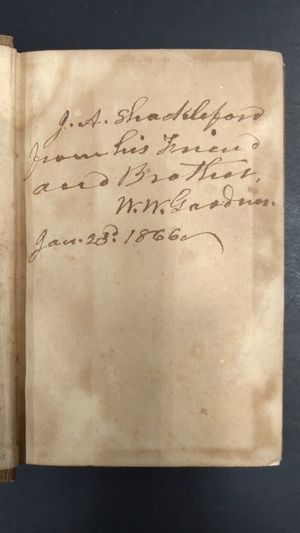 J. A. Shackleford
from his Friend
and Brother,
W. W. Gardner.
Jan. 23d. 1866